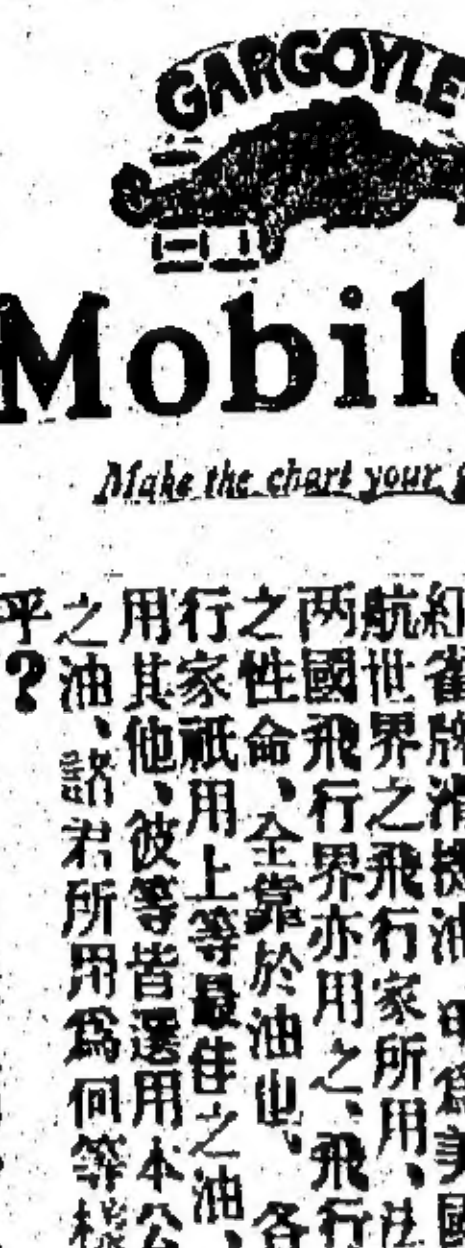 GARGOYLE
Mobil
Make the chart your
紅雀牌滑機油 爲美國
航世界之飛行家所用、法
两國飛行界亦用之、飛行
之性命、全靠於油也、各
行家祇用上等最佳之油、
用其他、彼等皆選用本公
之油、諸君所用爲何等樣
乎?